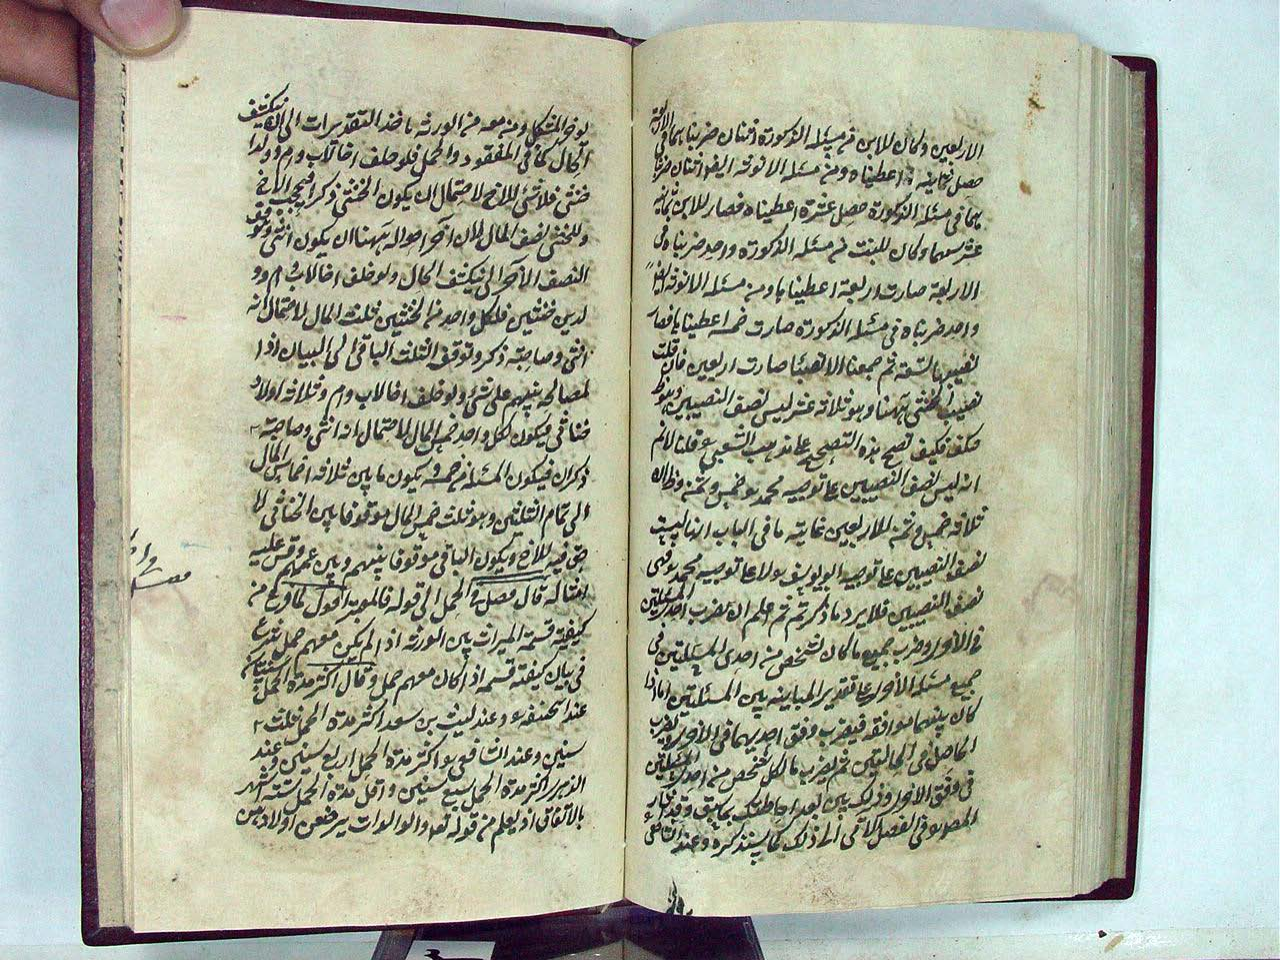 الاربعين وكان للابن من مسئلة الذكورة اثنان ضربناهما في الاربعة
حصل ثمانية اعطيناه ومن مسئلة الانوثة ايضا اثنان ضربنا
هما في مسئلة الذكورة حصل عشرة اعطيناه فصار للابن ثمانية
عشر سهما وكان للبنت من مسئلة الذكورة واحد ضربناه في
الاربعة صارت اربعة اعطيناها ومن مسئلة الانوثة ايضا
واحد ضربناه في مسئلة الذكورة صارت خمسة اعطيناها فصار
نصيبها تسعة ثم جمعنا الانصباء صارت اربعين فان قلت
نصيب الخنثى ههنا وهو ثلاثة عشر ليس نصف النصيبين وهو
فكيف تصح هذه التصحيح على مذهب الشعبي قلنا لانم
انه ليس نصف النصيبين على توجيه محمد هو خمس وثمن
ثلاثة خمس وثمن للاربعين غاية ما في الباب انها ليست
نصف النصيبين على توجيه ابو يوسف على توجيه محمد فهي
نصف النصيبين فلا يرد ما ذكرتم ثم اعلم ان نضرب احد المسئلتين
في الاخرى وضرب جميع ما كان لشخص من احدى المسئلتين في
جميع مسئلة الاخرى على تقدير المباينة بين المسئلتين اما اذا
كان بينهما موافقة فيضرب وفق احديهما في الاخرى ويضرب
الحاصل في الحالتين ثم نضرب ما لكل شخص من احدى المسئلتين
في وفق الاخرى وذلك بين بعد احاطتك بما سبق وقد اشار
المصنف في الفصل الاتي الى ذلك كما سنذكره وعند الشافعي
لو خ المشكل ومن معه من الورثة ياخذ التقديرات الى ان ينكشف
الحال كما في المفقود والحمل فلو خلف اخا لاب وام وولدا
خنثى فلا شئ للاخ لاحتمال ان يكون الخنثى ذكرا فيحجب الاخ
وللخنثى نصف المال لان اخس احواله ههنا ان يكون انثى وتوقف
النصف الاخر الى ينكشف الحال ولو خلف اخا لاب وام وو
لدين خنثيين فلكل واحد من الخنثيين ثلث المال لاحتمال انه
انثى وصاحبه ذكر وتوقف الثلث الباقي الى البيان اذا
لمصالحة بينهم على شئ ولو خلف اخا لاب وام وثلاثة اولاد
خناثى فيكون لكل واحد خمس المال لاحتمال انه انثى وصاحبه
ذكران فيكون المسئلة من خمسة ويكون ما بين ثلاثة اخماس المال
الى تمام الثلثين وهو ثلث خمس المال موقوفا بين الخناثى لا
حق فيه للاخ ويكون الباقي موقوفا بينهم وبين عمهم وقس عليه
امثاله قال فصل في الحمل الى قوله فالمورث اقول لما فرغ من
كيفية قسمة الميراث بين الورثة اذا لم يكن معهم حمل شرع
في بيان كيفية قسمة اذا كان معهم حمل وقال اكثر مدة الحمل سنتان
عند ابي حنيفة وعند ليث بن سعد اكثر مدة الحمل ثلث
سنين وعند الشافعي هو اكثر مدة الحمل اربع سنين وعند
الزهري اكثر مدة الحمل سبع سنين واقل مدة الحمل ستة اشهر
بالاتفاق اذ يعلم من قوله تعالى والوالدات يرضعن اولادهن